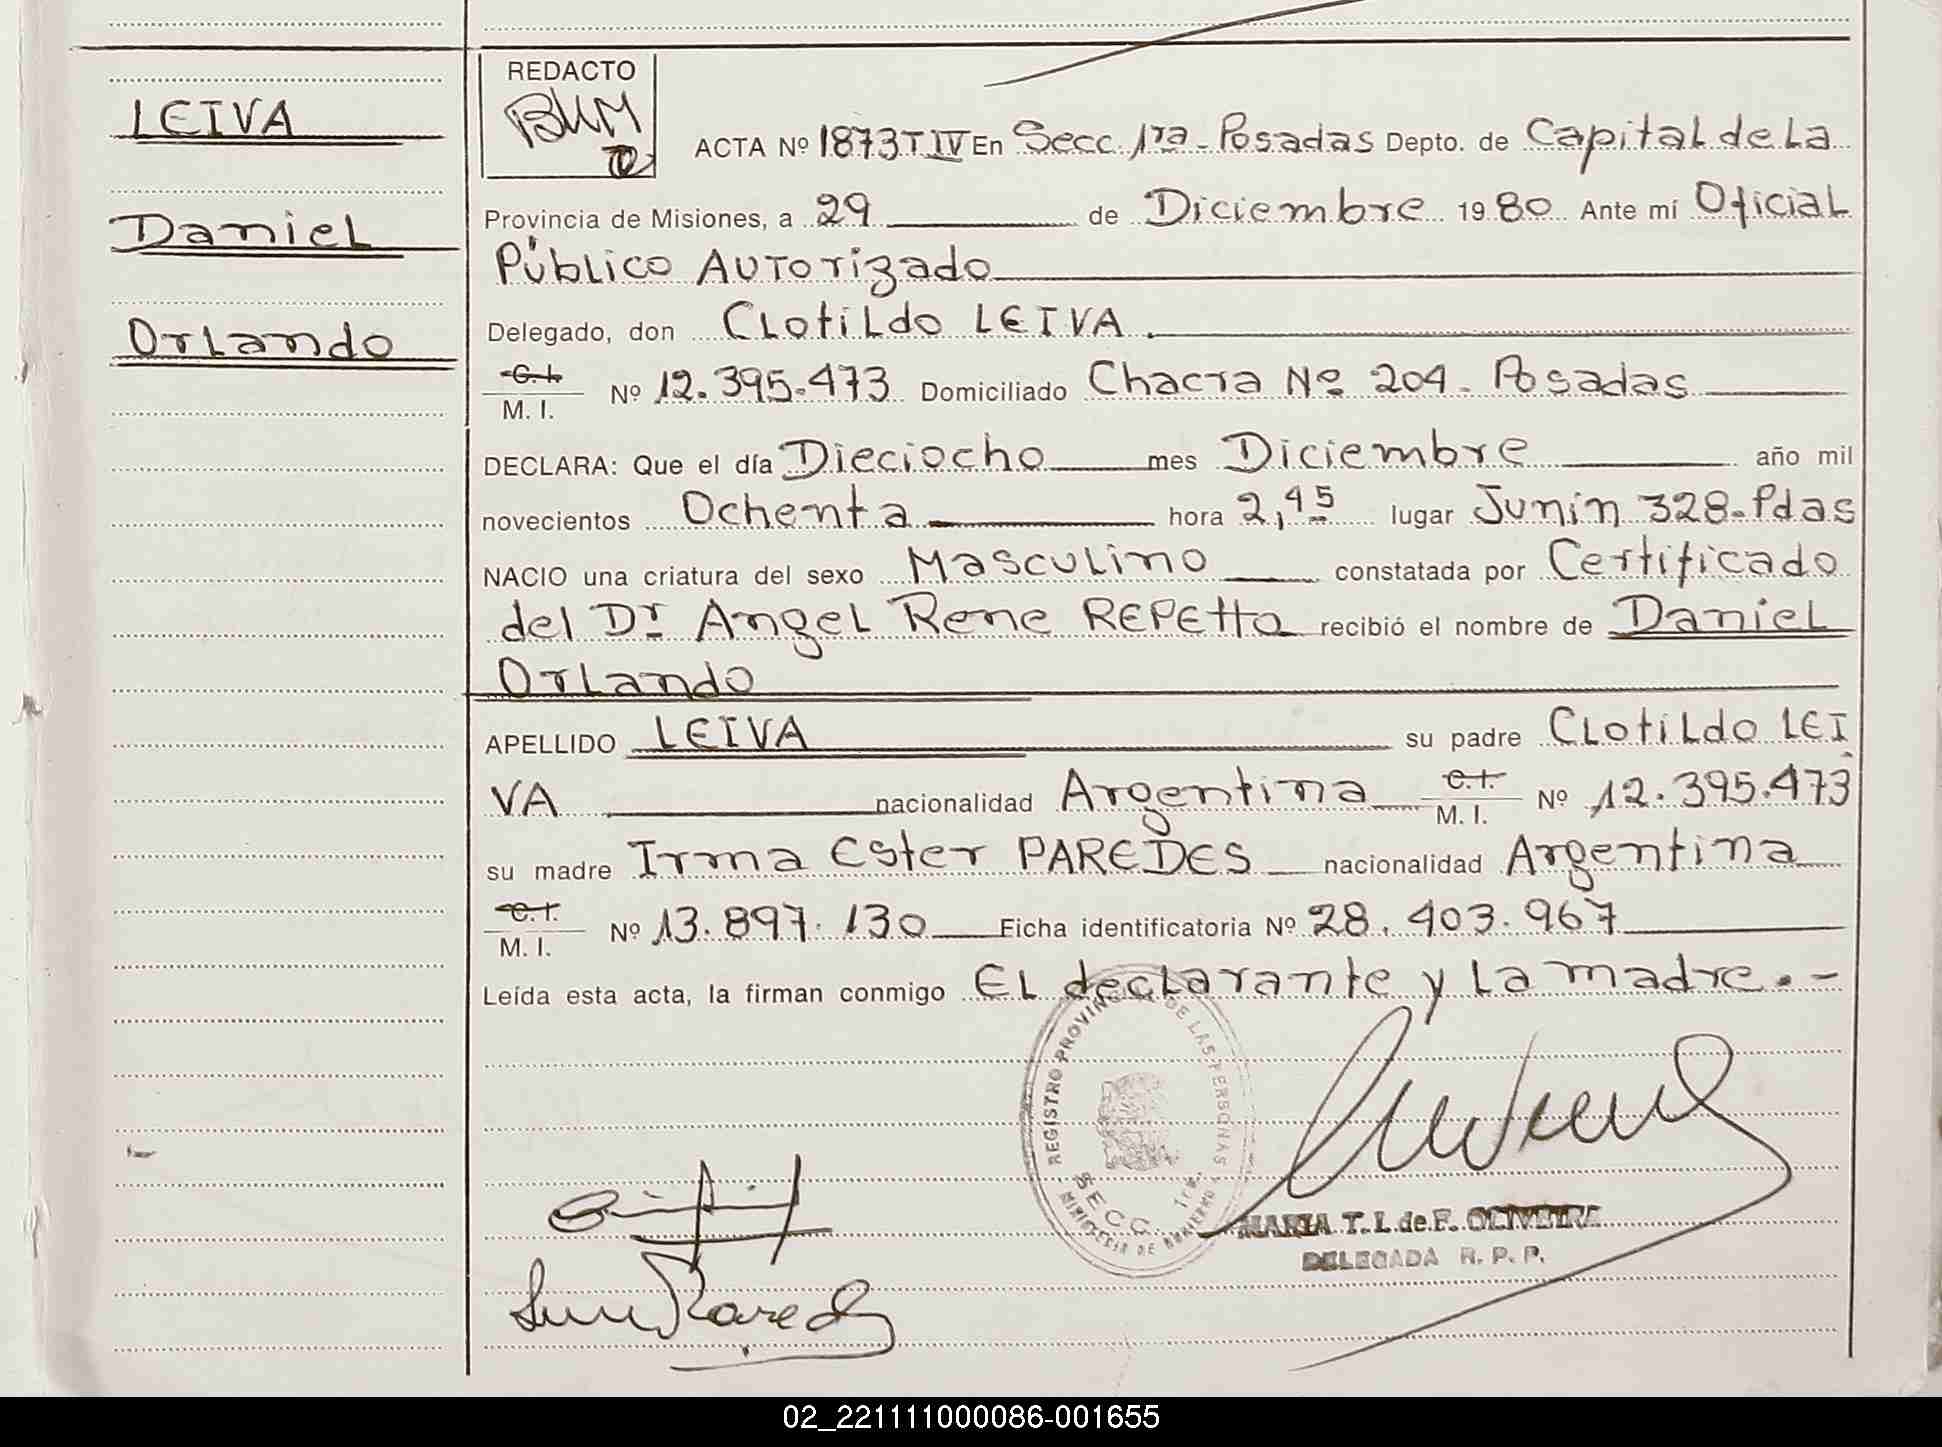 LEIVA
Daniel
Orlando
REDACTO
ACTA Nº 1873 T IV En Secc. 1ra - Posadas Depto. de Capital de La
Provincia de Misiones, a 29 de Diciembre 1980 Ante mí Oficial
Público Autorizado
Delegado, don Clotildo LEIVA.
C.I. M. I. Nº 12.395.473 Domiciliado Chacra Nº 204 - Posadas
DECLARA: Que el día Dieciocho mes Diciembre año mil
novecientos Ochenta hora 2,45 lugar Junin 328 - Pdas
NACIO una criatura del sexo Masculino constatada por Certificado
del Dr Angel Rene REPEtto recibió el nombre de Daniel
Orlando
APELLIDO LEIVA su padre Clotildo LEI
VA nacionalidad Argentina C.I. M. I. Nº 12.395.473
su madre Irma Ester PAREDES nacionalidad Argentina
C.I. M. I. Nº 13.897.130 Ficha identificatoria Nº 28.403.967
Leída esta acta, la firman conmigo EL declarante y La madre.-
REGISTRO PROVINCIAL DE LAS PERSONAS
SECC. 1ra.
MINISTERIO DE GOBIERNO
MARIA T. I. de F. OLIVEIRA
DELEGADA R. P. P.
02_221111000086-001655